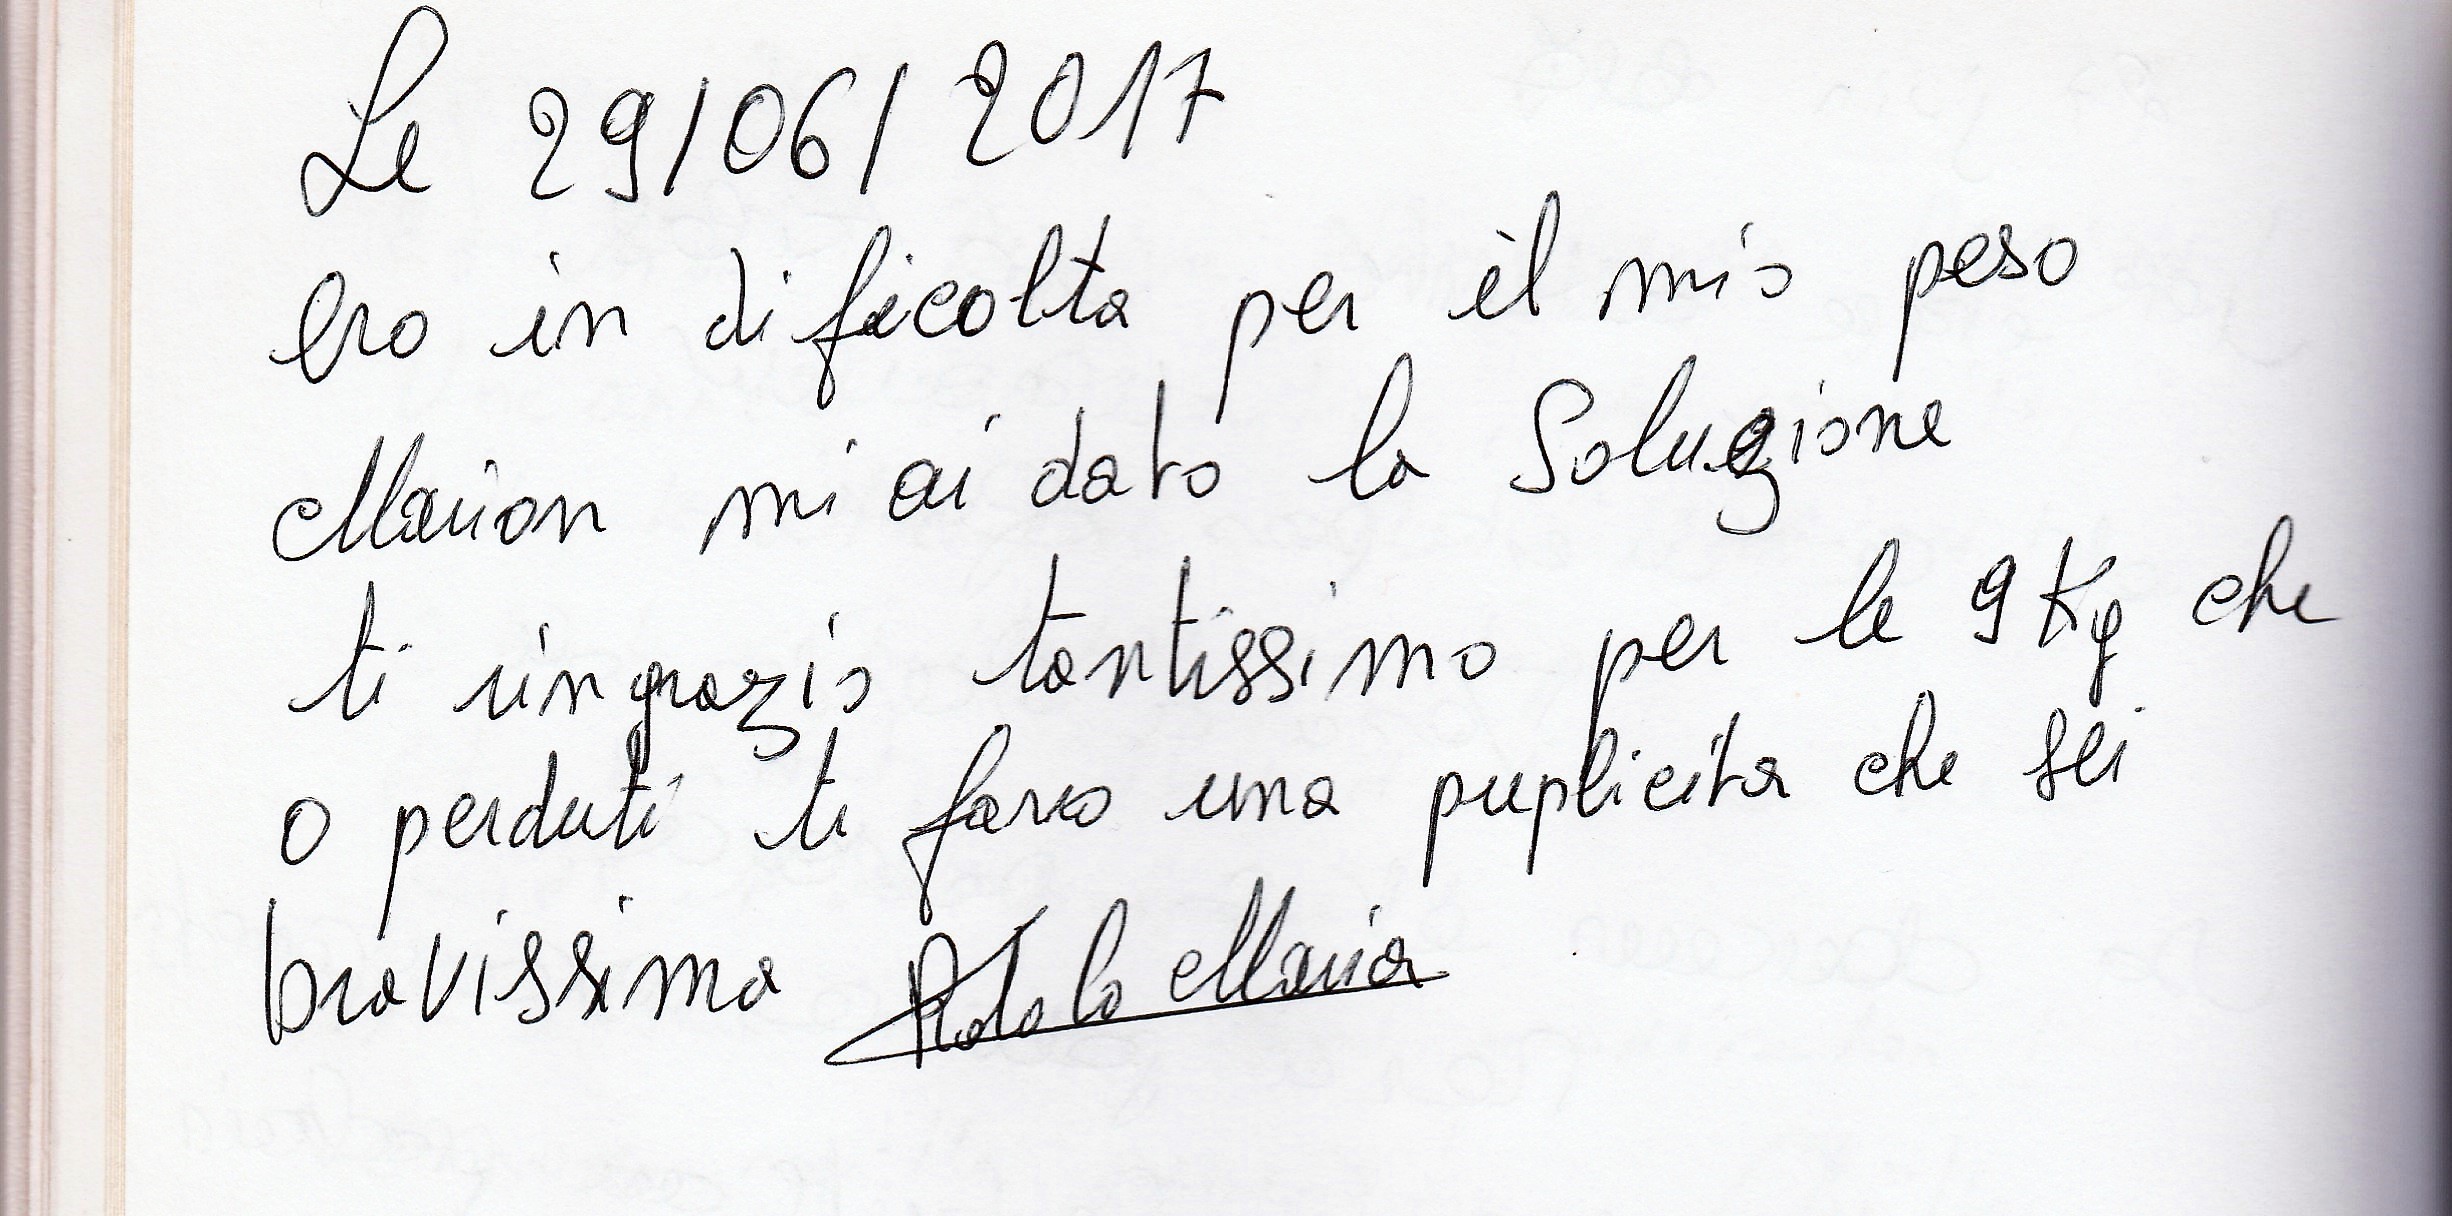 Le 29/06/2017
ero in dificolta per il mio peso
Marion mi ai dato la Soluzione
ti ringrazio tantissimo per le 9 Kg che
o perduti ti faro una puplicita che sei
bravissima Maria